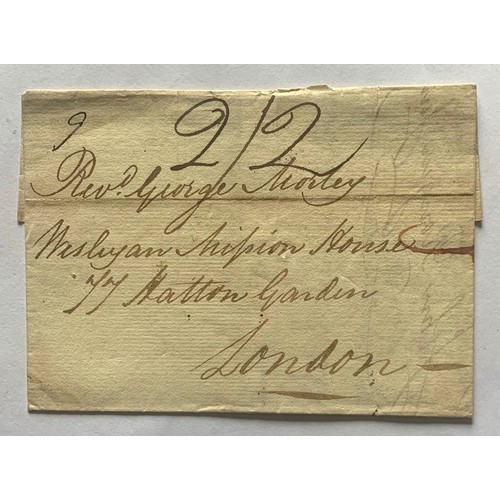 9 2/2
Revd. George Morley
Wesleyan Mission House
77 Hatton Garden
London